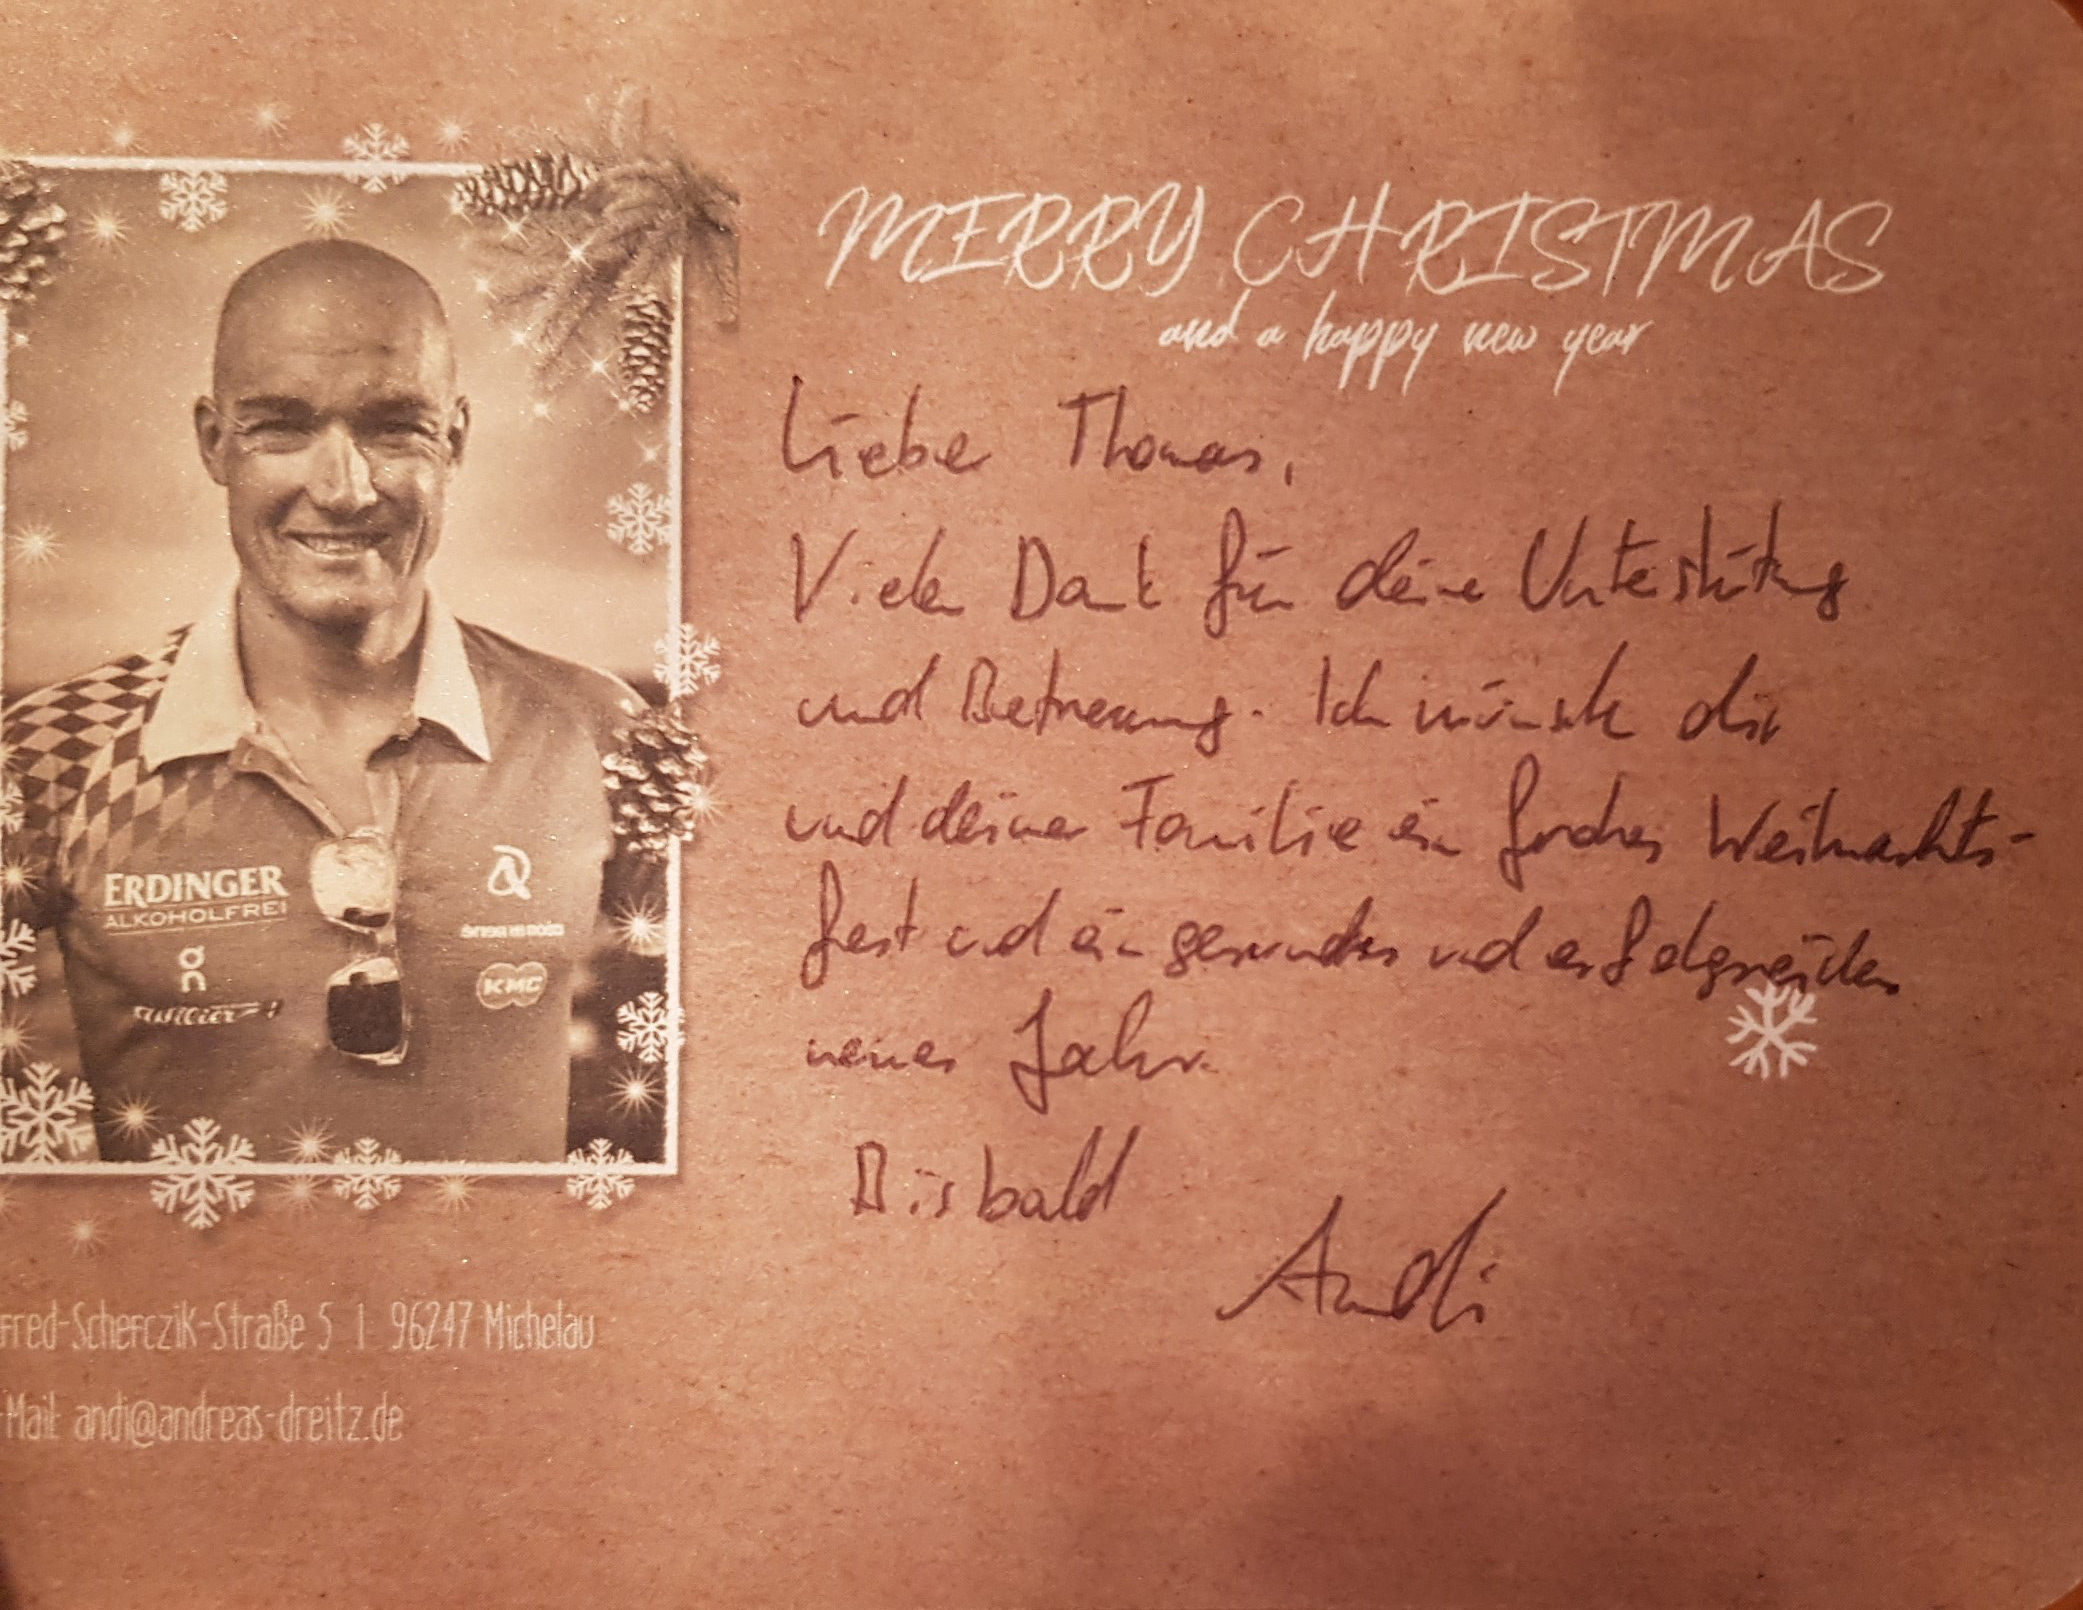 MERRY CHRISTMAS
and a happy new year
Lieber Thomas,
Vielen Dank für deine Unterstützung
und Betreuung. Ich wünsche dir
und deiner Familie ein frohes Weihnachts-
fest und ein gesundes und erfolgreiches
neues Jahr.
Bis bald
Andi
ERDINGER
ALKOHOLFREI
on
KMC
fred-Scherczik-Straße 5 | 96247 Michelau
Mail: andi@andreas-dreitz.de